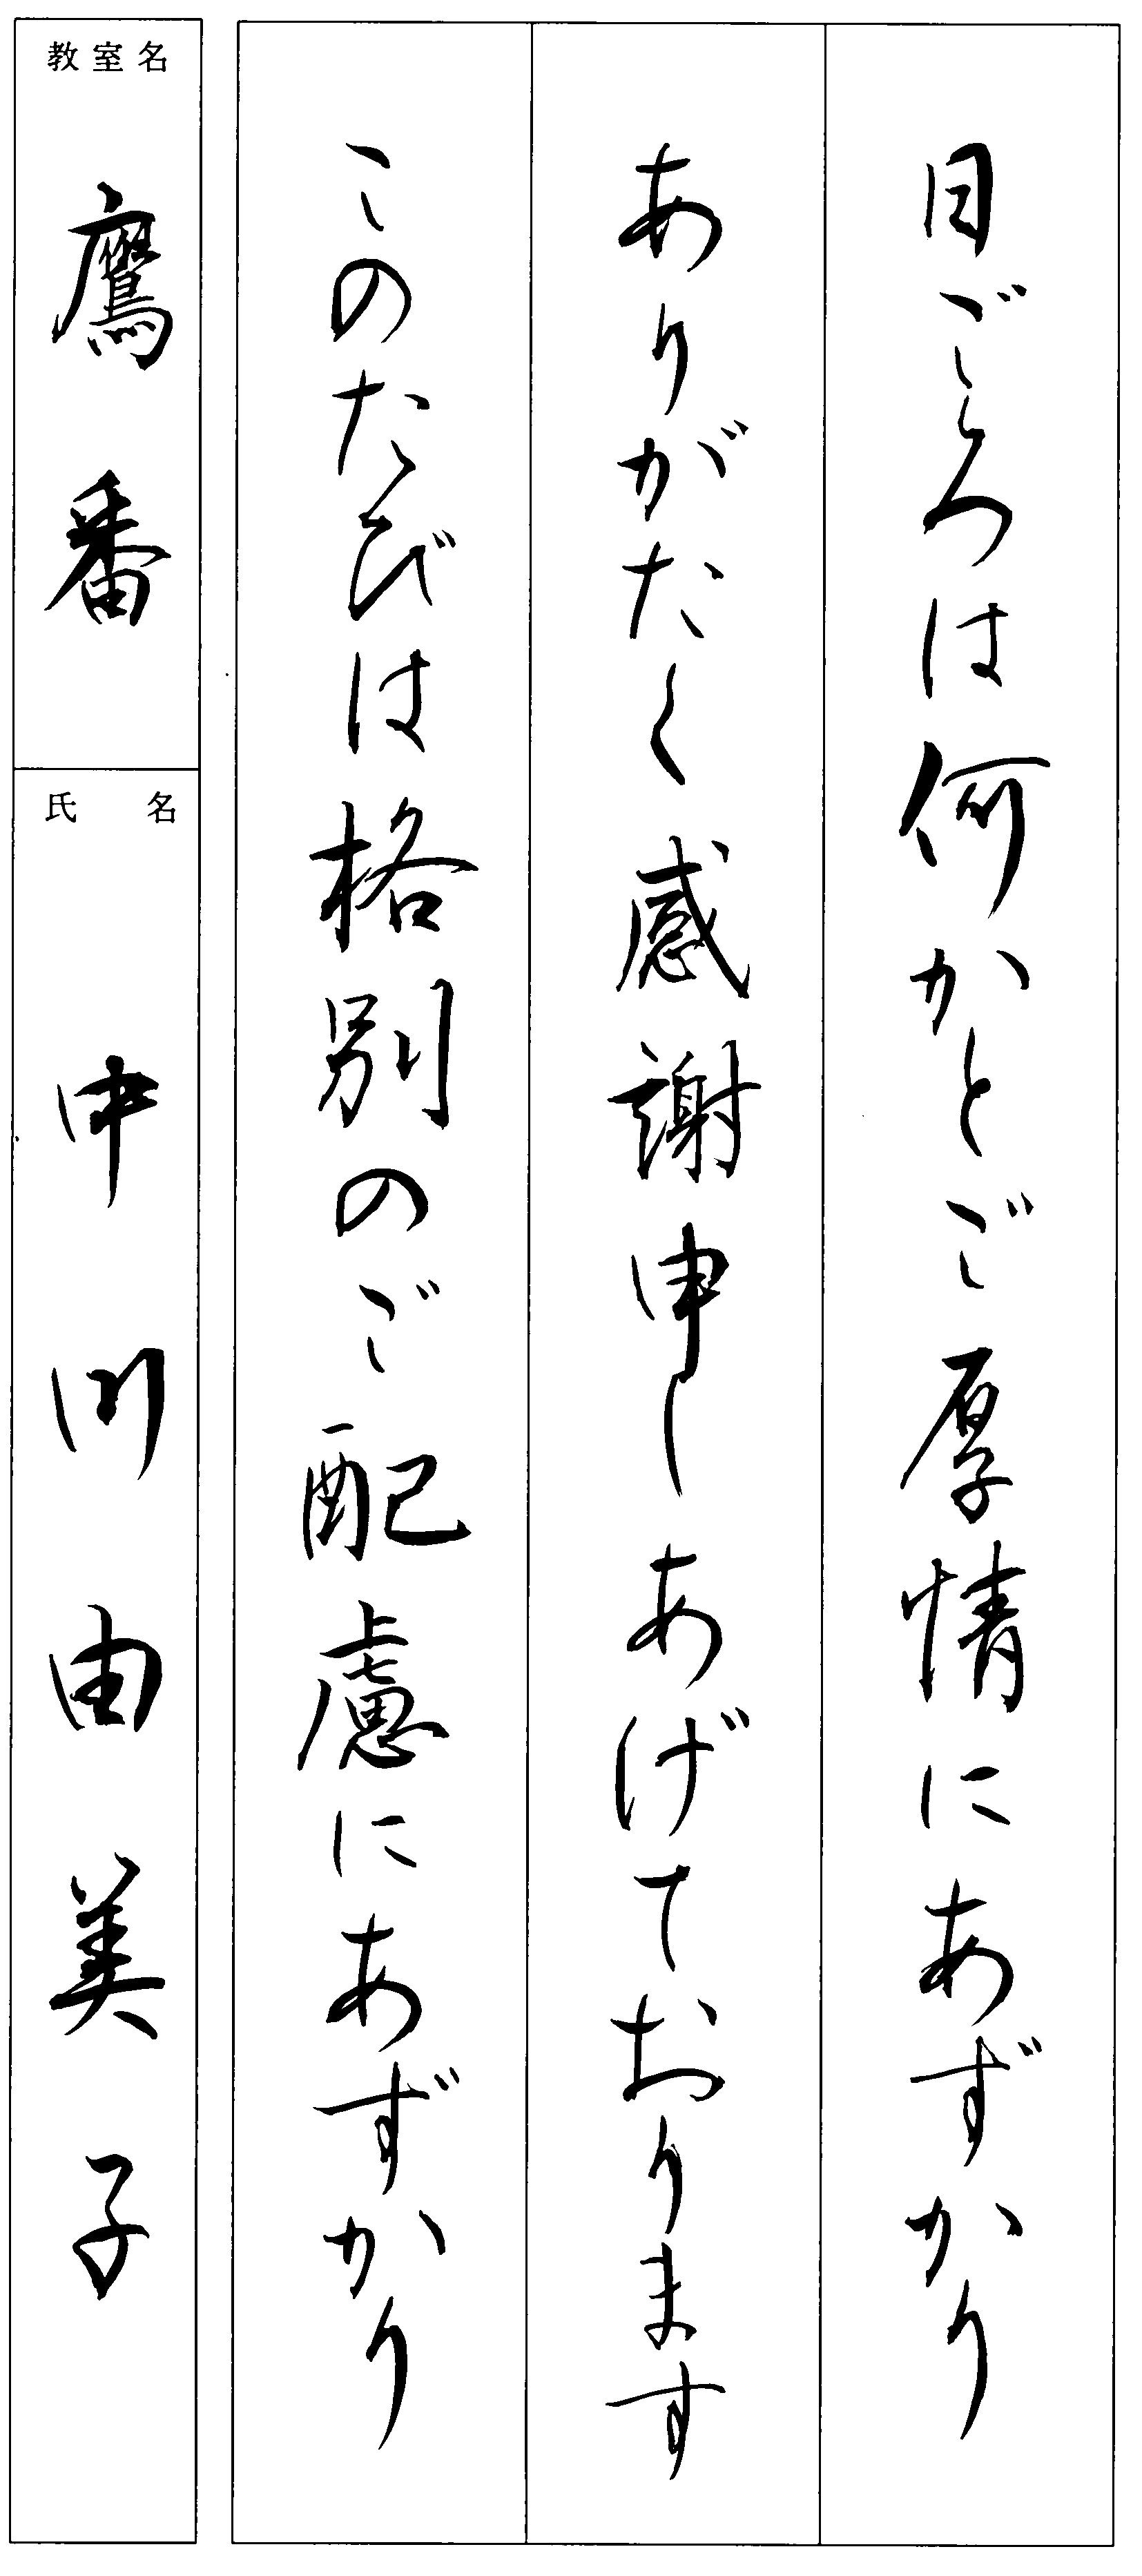 日ごろは何かとご厚情にあずかり
ありがたく感謝申しあげております
このたびは格別のご配慮にあずかり
教室名
鷹番
氏名
中川由美子